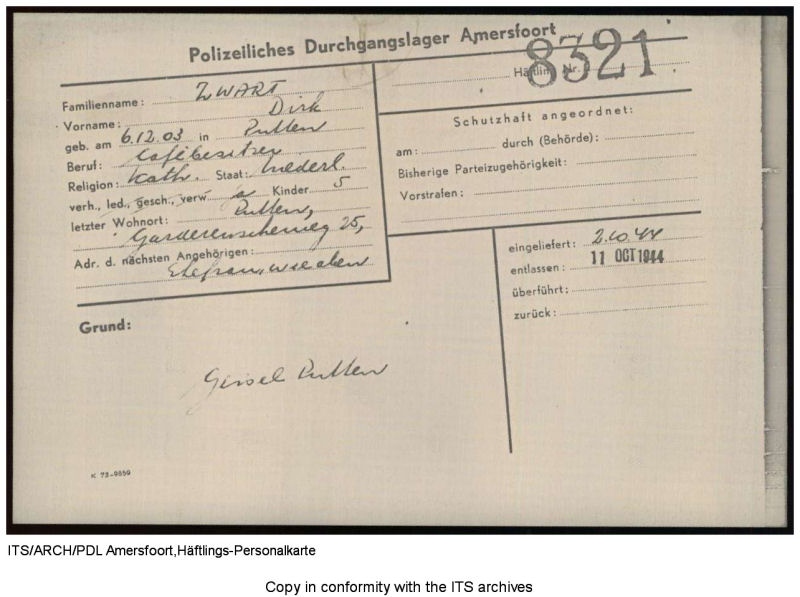 Polizeiliches Durchgangslager Amersfoort
8321
Häftlin Nr.
Familienname: ZWART
Vorname: Dirk
geb. am 6.12.03 in Putten
Beruf: Cafébesitzer
Religion: Kath. Staat: Niederl.
verh., led., gesch., verw Kinder 5
letzter Wohnort: Putten,
Garderenscheweg 25,
Adr. d. nächsten Angehörigen:
Ehefrau, wie oben
Schutzhaft angeordnet:
am: durch (Behörde):
Bisherige Parteizugehörigkeit:
Vorstrafen:
eingeliefert: 2.10.44
entlassen: 11 OCT 1944
überführt:
zurück:
Grund:
Geisel Putten
K 73-9859
ITS/ARCH/PDL Amersfoort,Häftlings-Personalkarte
Copy in conformity with the ITS archives